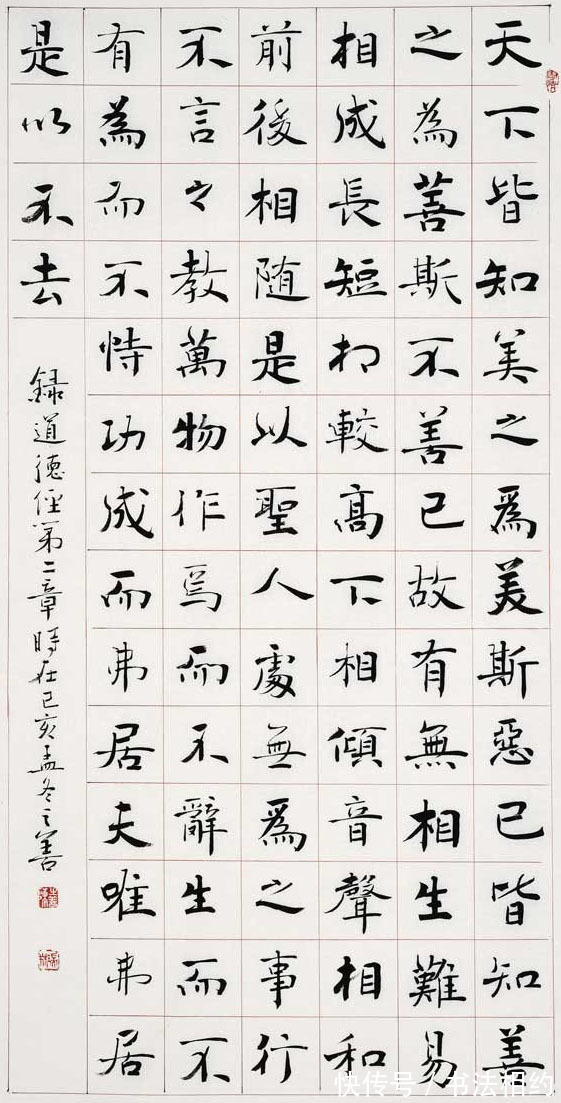 天下皆知美之爲美斯惡已皆知善
之為善斯不善已故有無相生難易
相成長短相較高下相傾音聲相和
前後相随是以聖人處無爲之事行
不言之教萬物作焉而不辭生而不
有為而不恃功成而弗居夫唯弗居
是以不去
録道德经第二章時在己亥孟冬之善
快传号/书法相约